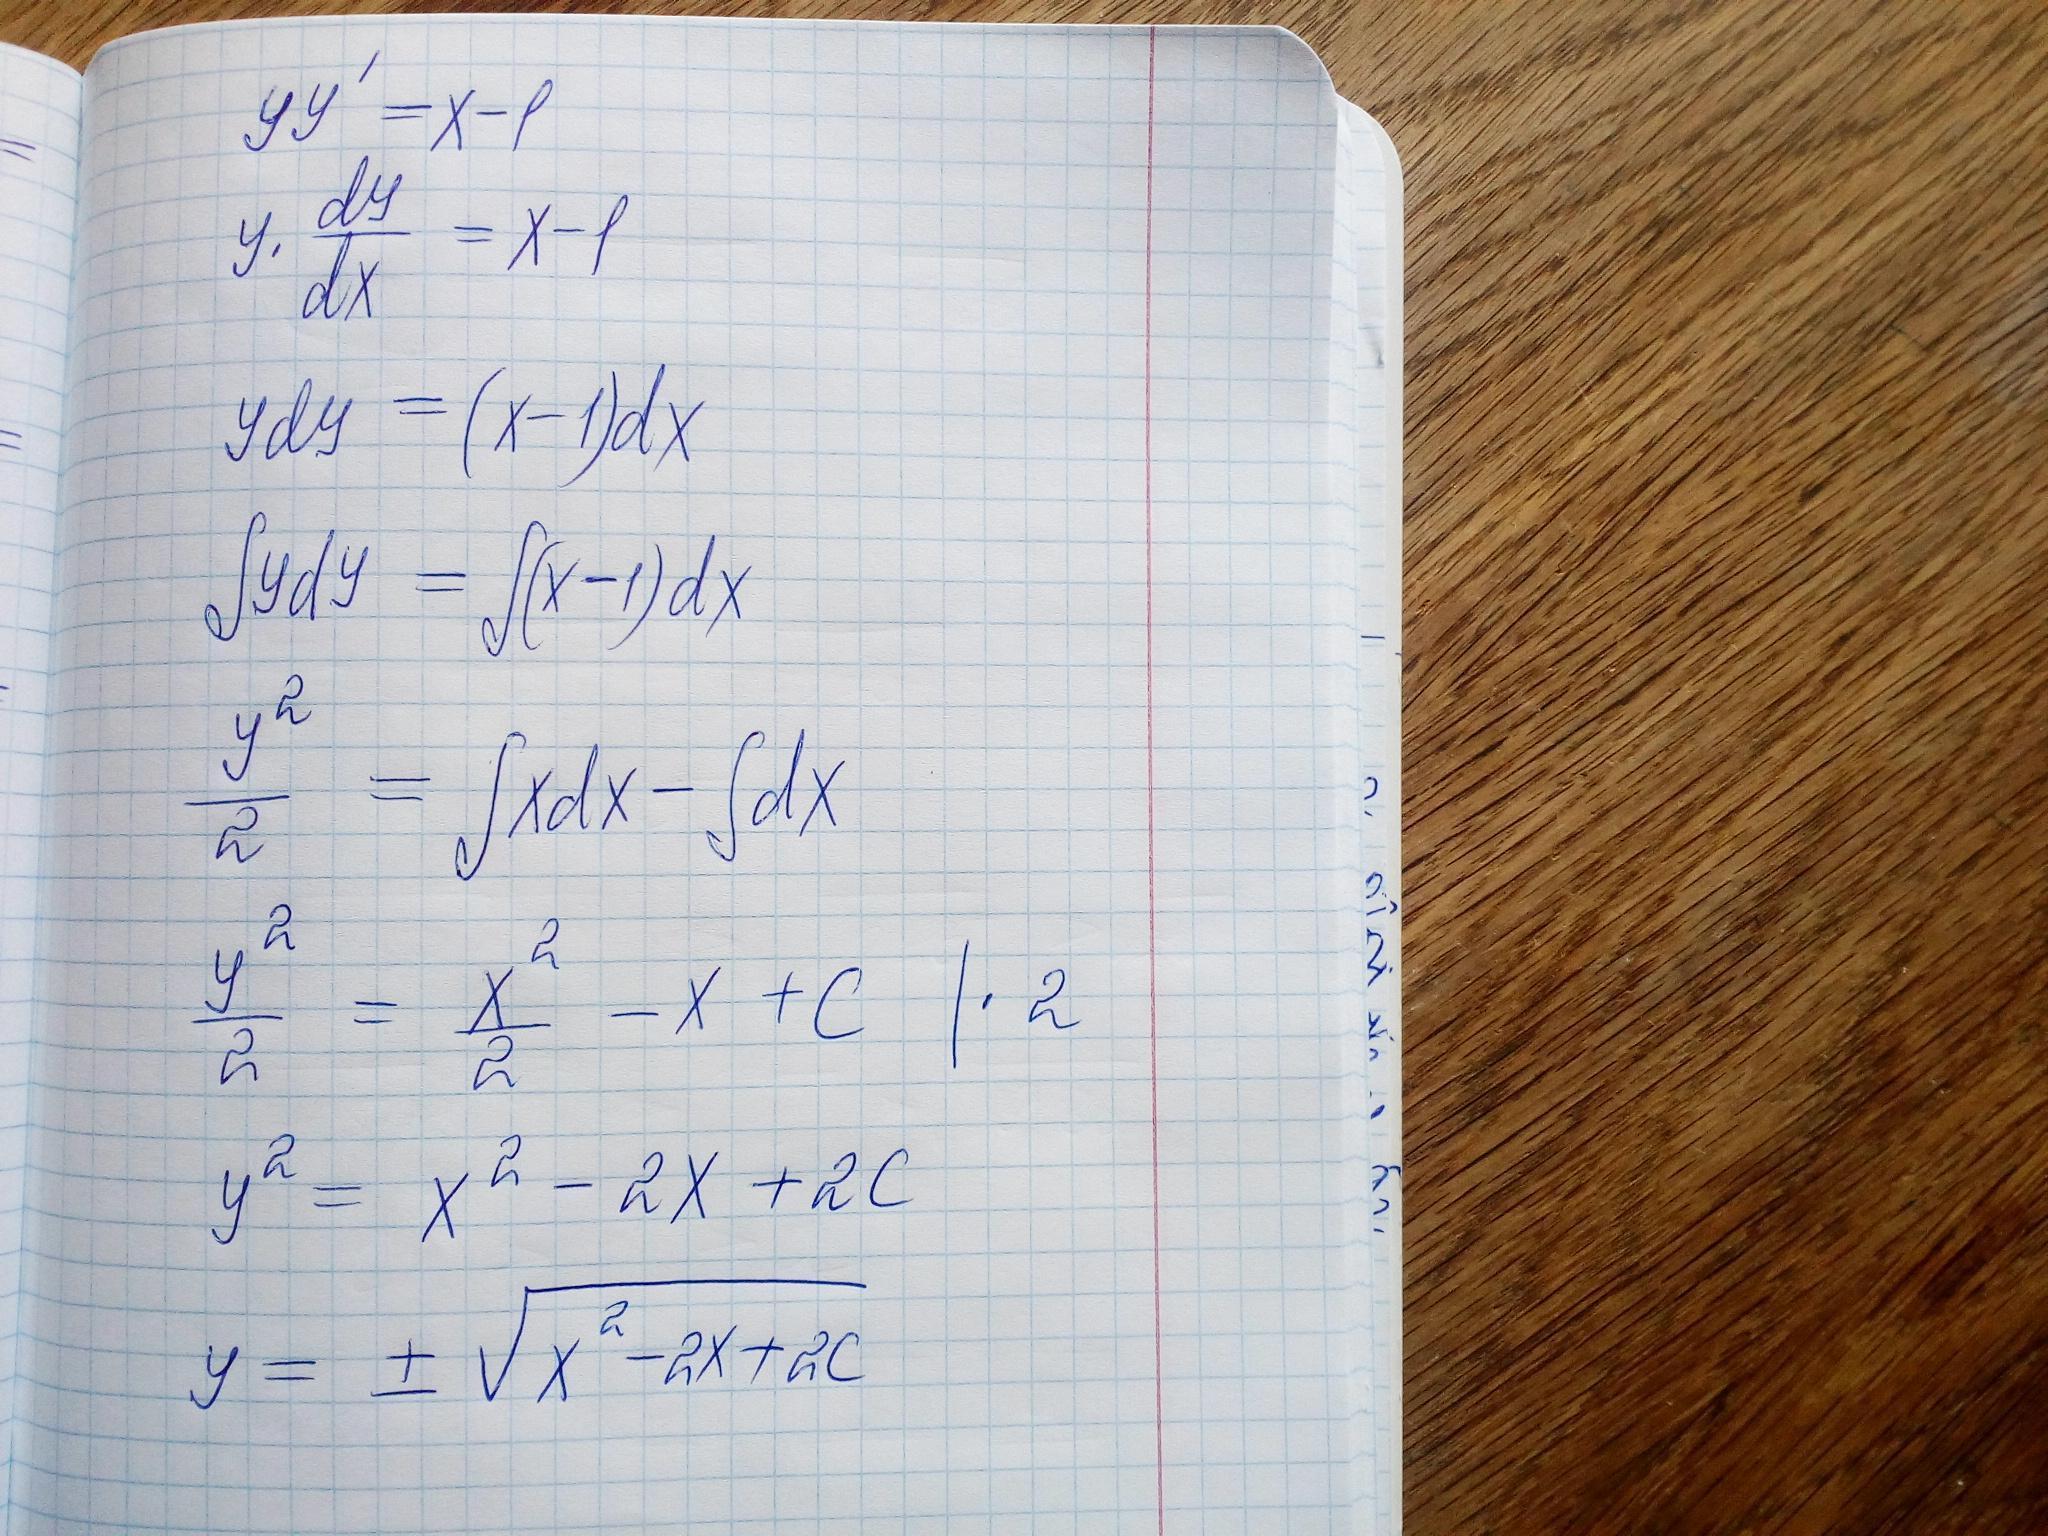 yy' = x-1
y · dy/dx = x-1
ydy = (x-1)dx
∫ydy = ∫(x-1)dx
y²/2 = ∫xdx - ∫dx
y²/2 = x²/2 - x + C | · 2
y² = x² - 2x + 2C
y = ± √(x² - 2x + 2C)